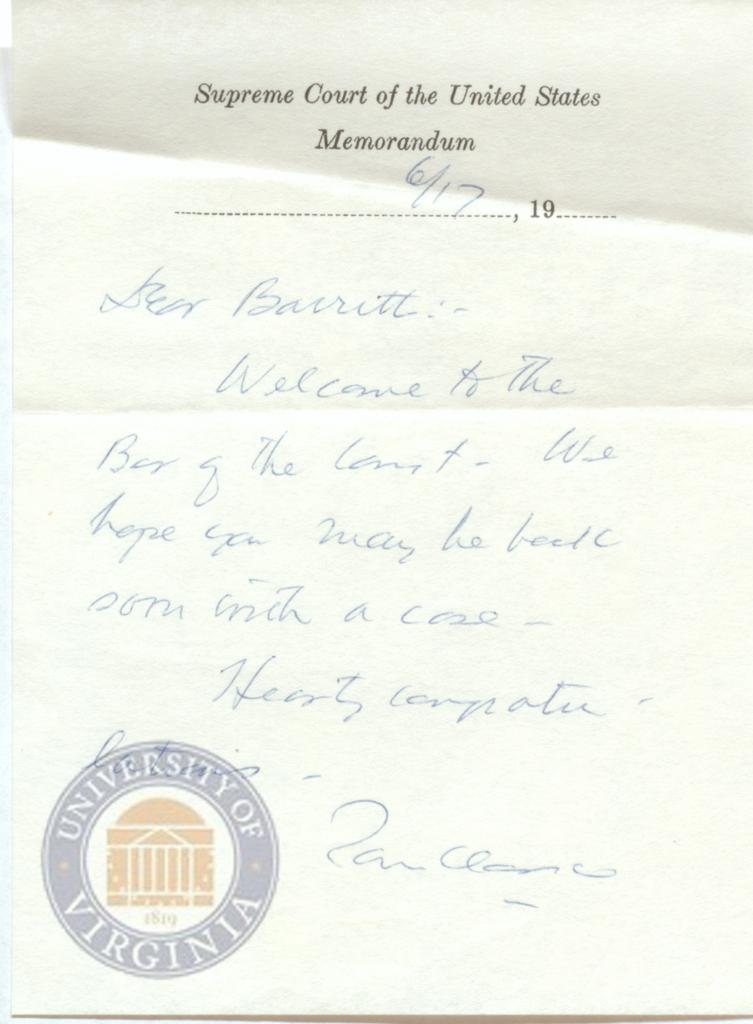 Supreme Court of the United States
Memorandum
6/17, 19
Dear Barrett:-
Welcome to the
Bar of the Court - We
hope you may be back
soon with a case -
Hearty congratu-
lations -
Tom Clark
UNIVERSITY OF
VIRGINIA
1819